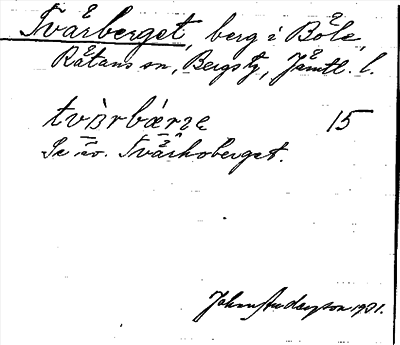 Tvärberget, berg i Böle,
Rätans sn, Bergs tg, Jämtl. l.
tvɑ̀rbærɿe 15
Se äv. Tvärhoberget.
John Anderson 1931.